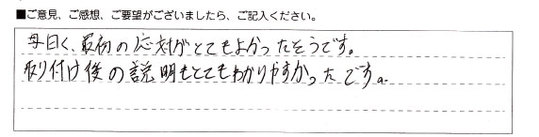 ■ご意見、ご感想、ご要望がございましたら、ご記入ください。
母曰く、最初の応対がとてもよかったそうです。
取り付け後の説明もとてもわかりやすかったです。